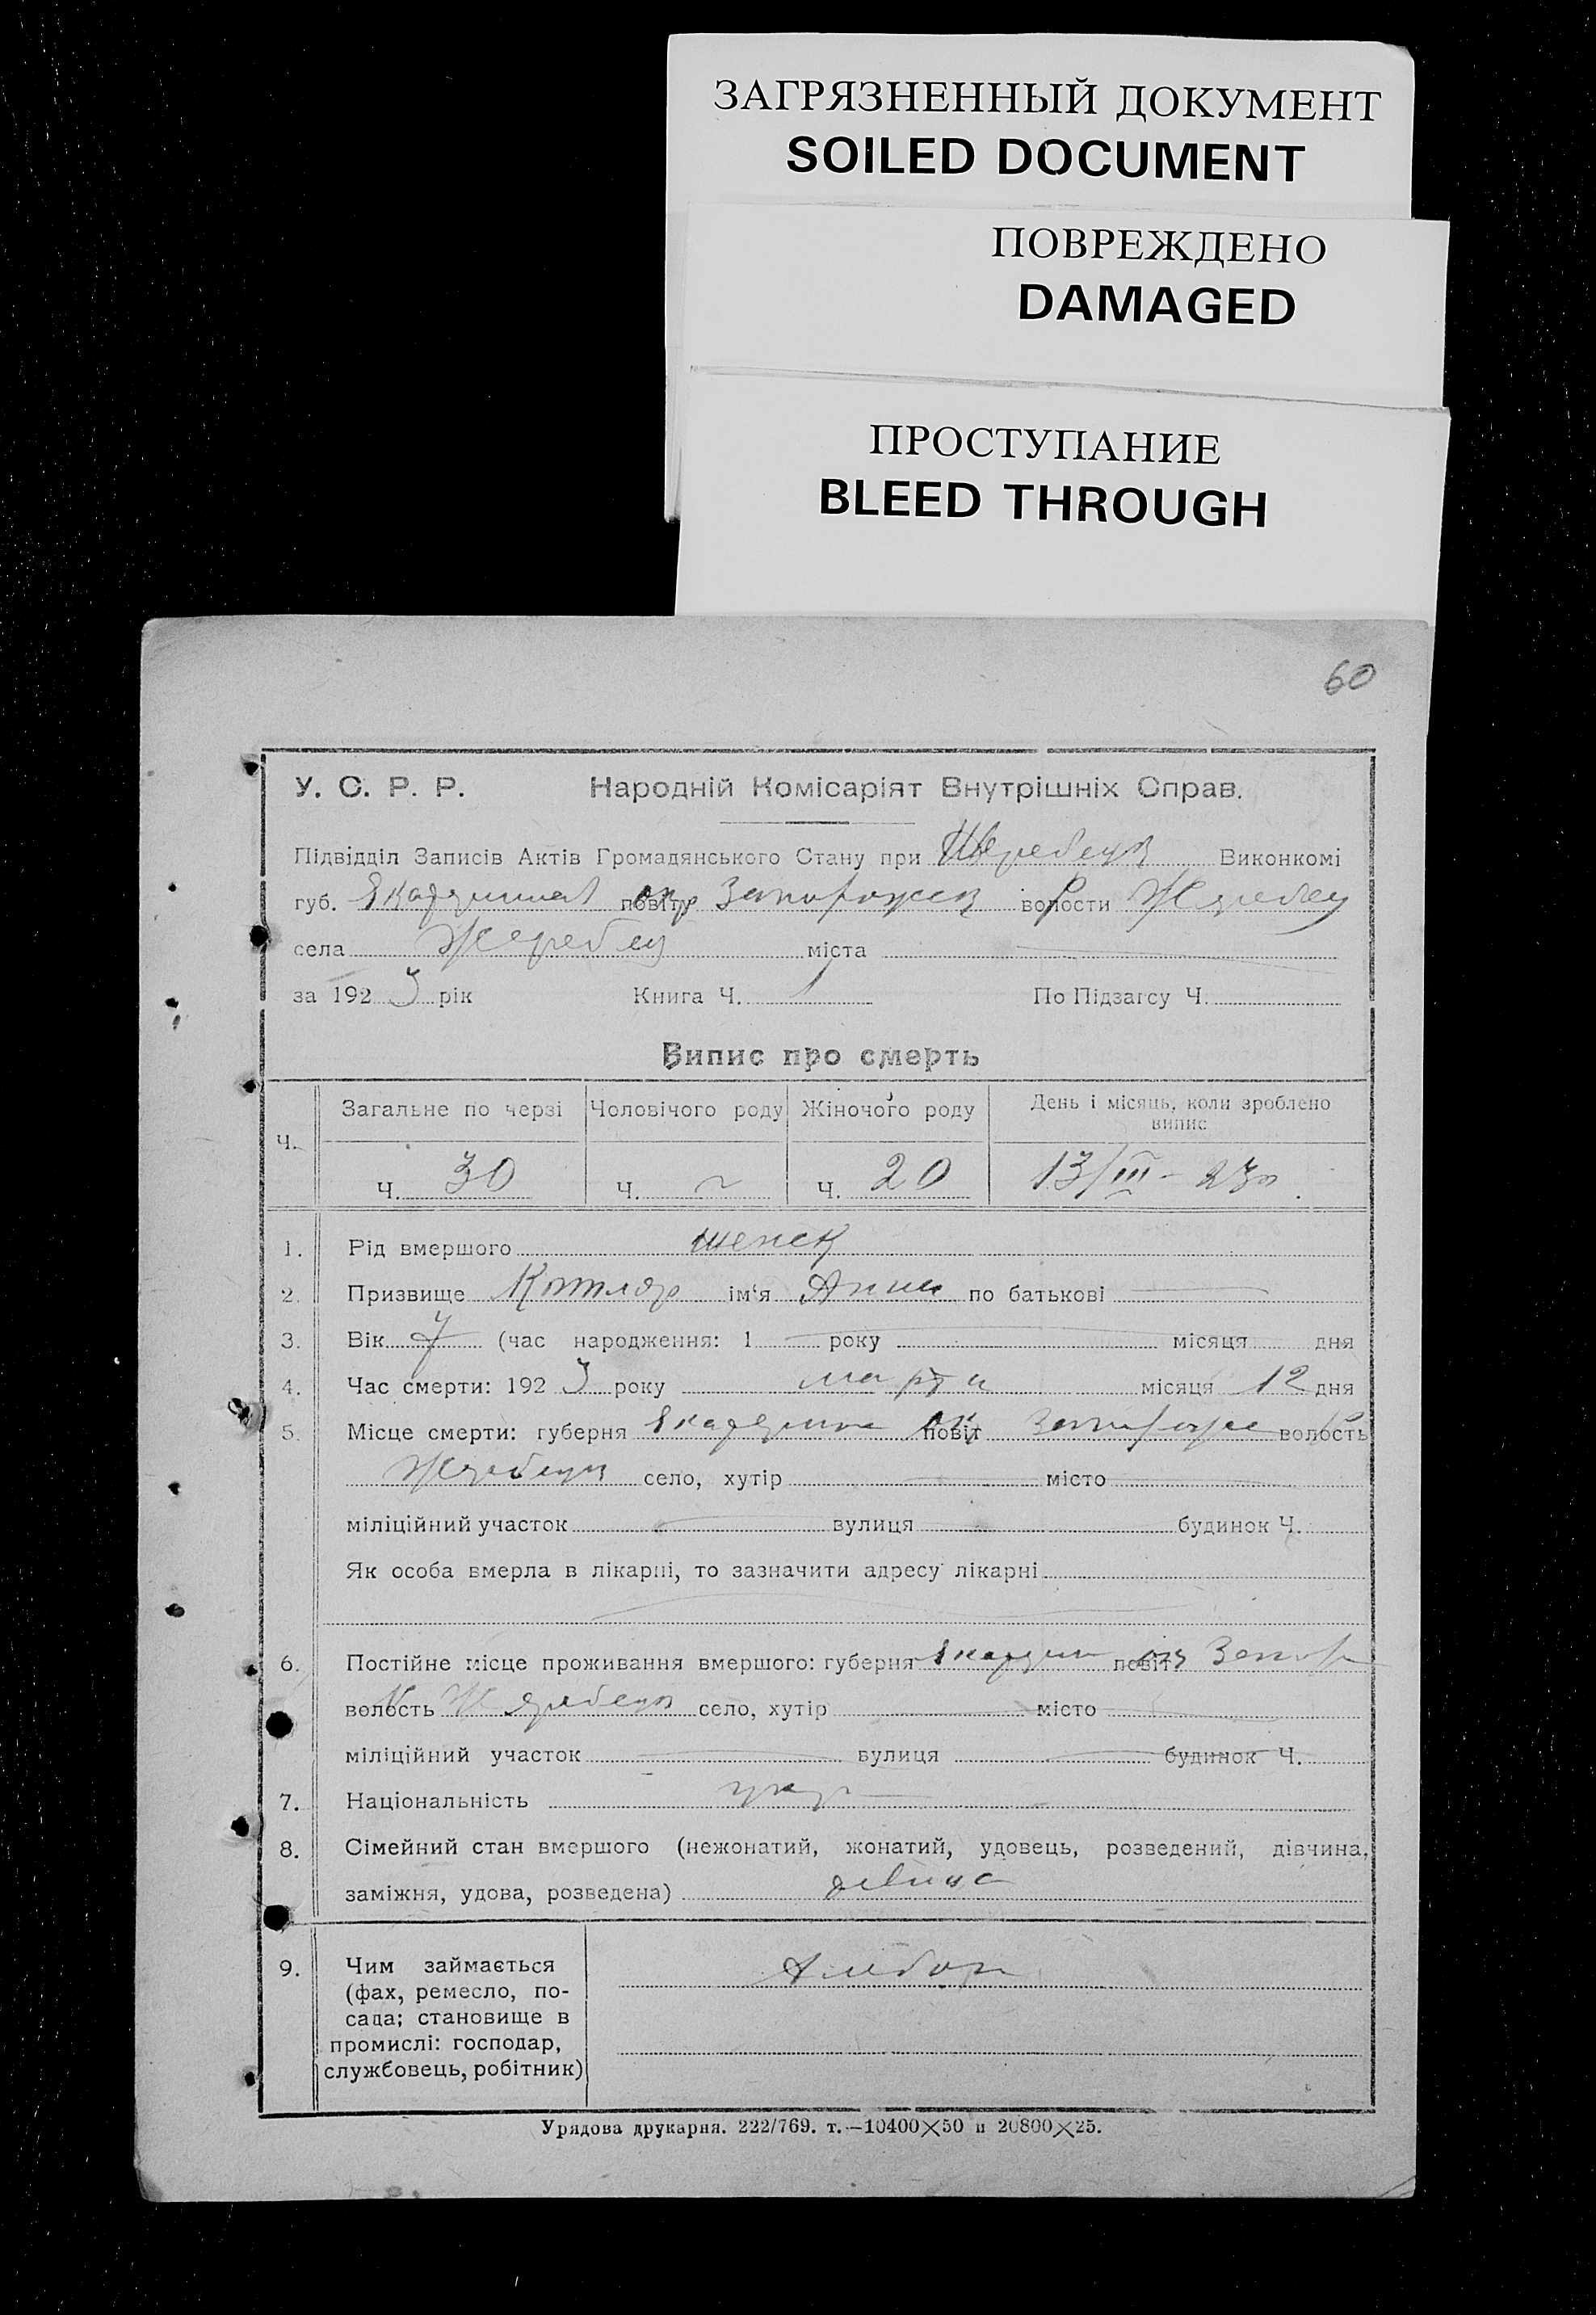 ЗАГРЯЗНЕННЫЙ ДОКУМЕНТ
SOILED DOCUMENT
ПОВРЕЖДЕНО
DAMAGED
ПРОСТУПАНИЕ
BLEED THROUGH
60
У. С. Р. Р. Народній Комісаріят Внутрішніх Справ.
Підвідділ Записів Актів Громадянського Стану при Виконкомі
губ. повіту волости
села Жеребец міста
за 1923 рік Книга Ч. 1 По Підзагсу Ч.
Випис про смерть
Ч. Загальне по черзі Чоловічого роду Жіночого роду День і місяць, коли зроблено випис
Ч. 30 Ч. Ч. 20 13/III - 23
1. Рід вмершого женск
2. Призвище Котляр ім'я Анна по батькові
3. Вік 7 (час народження: 1 року місяця дня
4. Час смерти: 1923 року марта місяця 12 дня
5. Місце смерти: губерня повіт волость
село, хутір місто
міліційний участок вулиця будинок Ч.
Як особа вмерла в лікарні, то зазначити адресу лікарні
6. Постійне місце проживання вмершого: губерня повіт
волость село, хутір місто
міліційний участок вулиця будинок Ч.
7. Національність укр
8. Сімейний стан вмершого (нежонатий, жонатий, удовець, розведений, дівчина,
заміжня, удова, розведена) девица
9. Чим займається
(фах, ремесло, по-
сада; становище в
промислі: господар,
службовець, робітник)
Урядова друкарня. 222/769. т.—10400×50 и 20800×25.